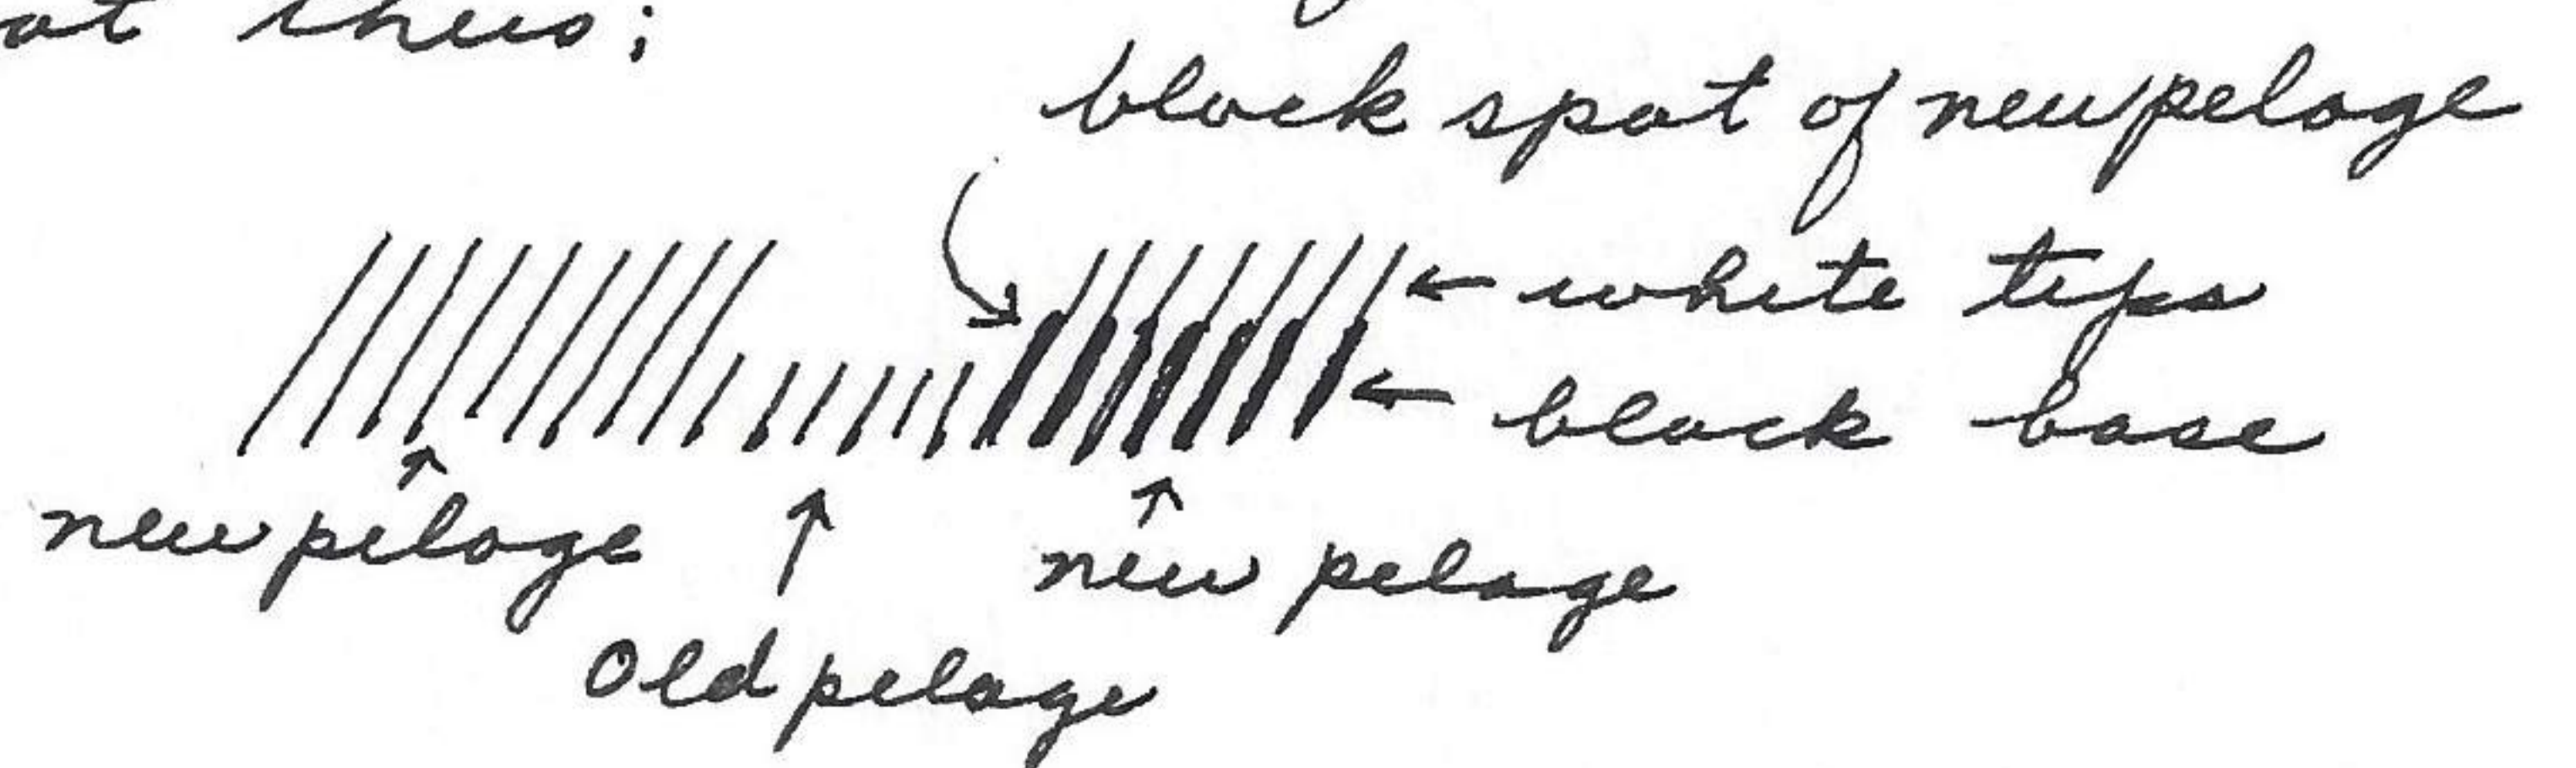 thus;
black spot of new pelage
white tips
black base
new pelage
new pelage
Old pelage